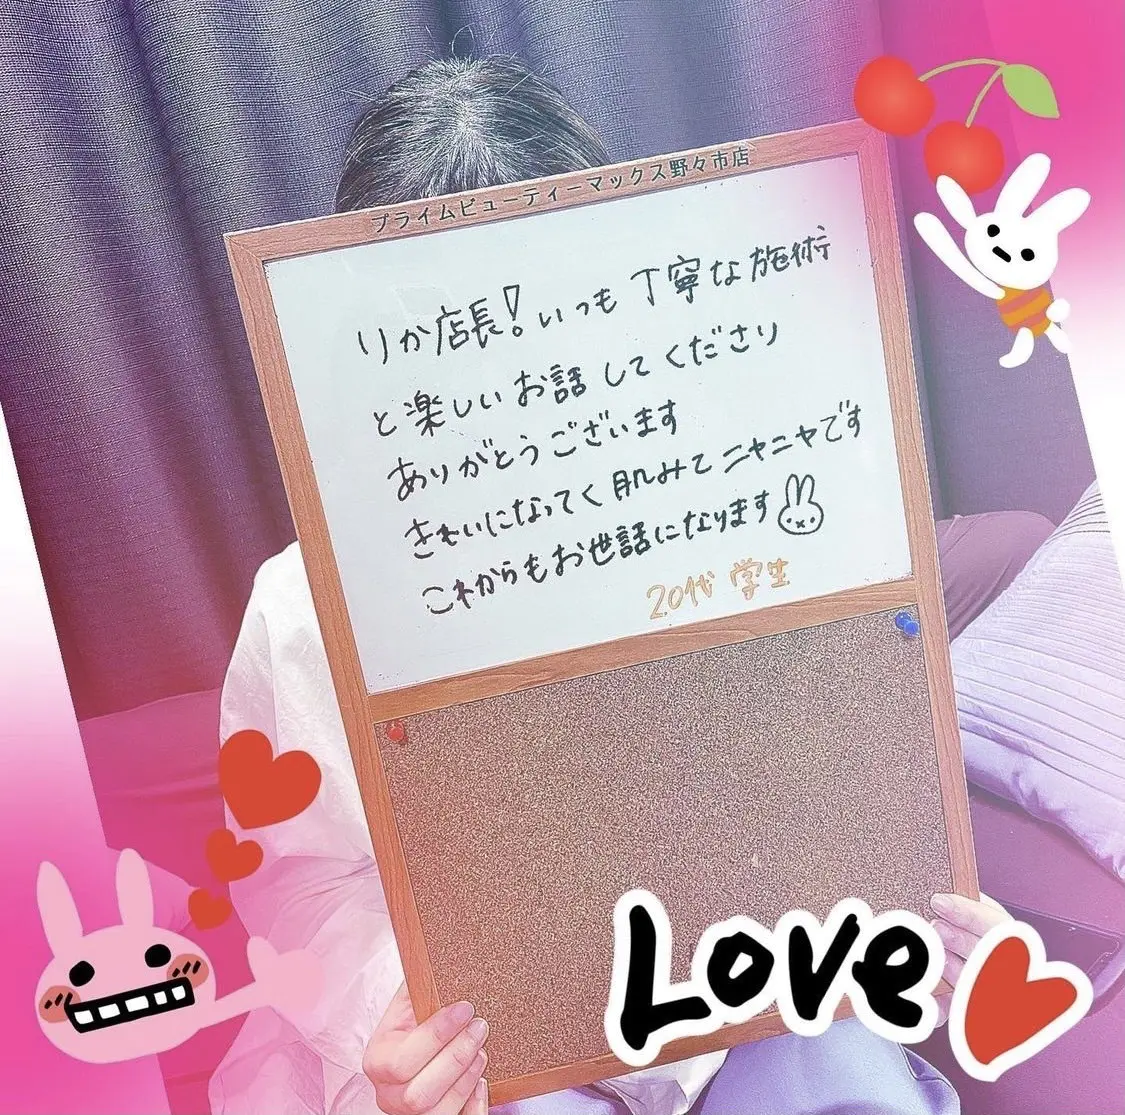 プライムビューティーマックス野々市店
りか店長!いつも丁寧な施術
と楽しいお話してくださり
ありがとうございます
きれいになってく肌みてニヤニヤです
これからもお世話になります
20代 学生
Love